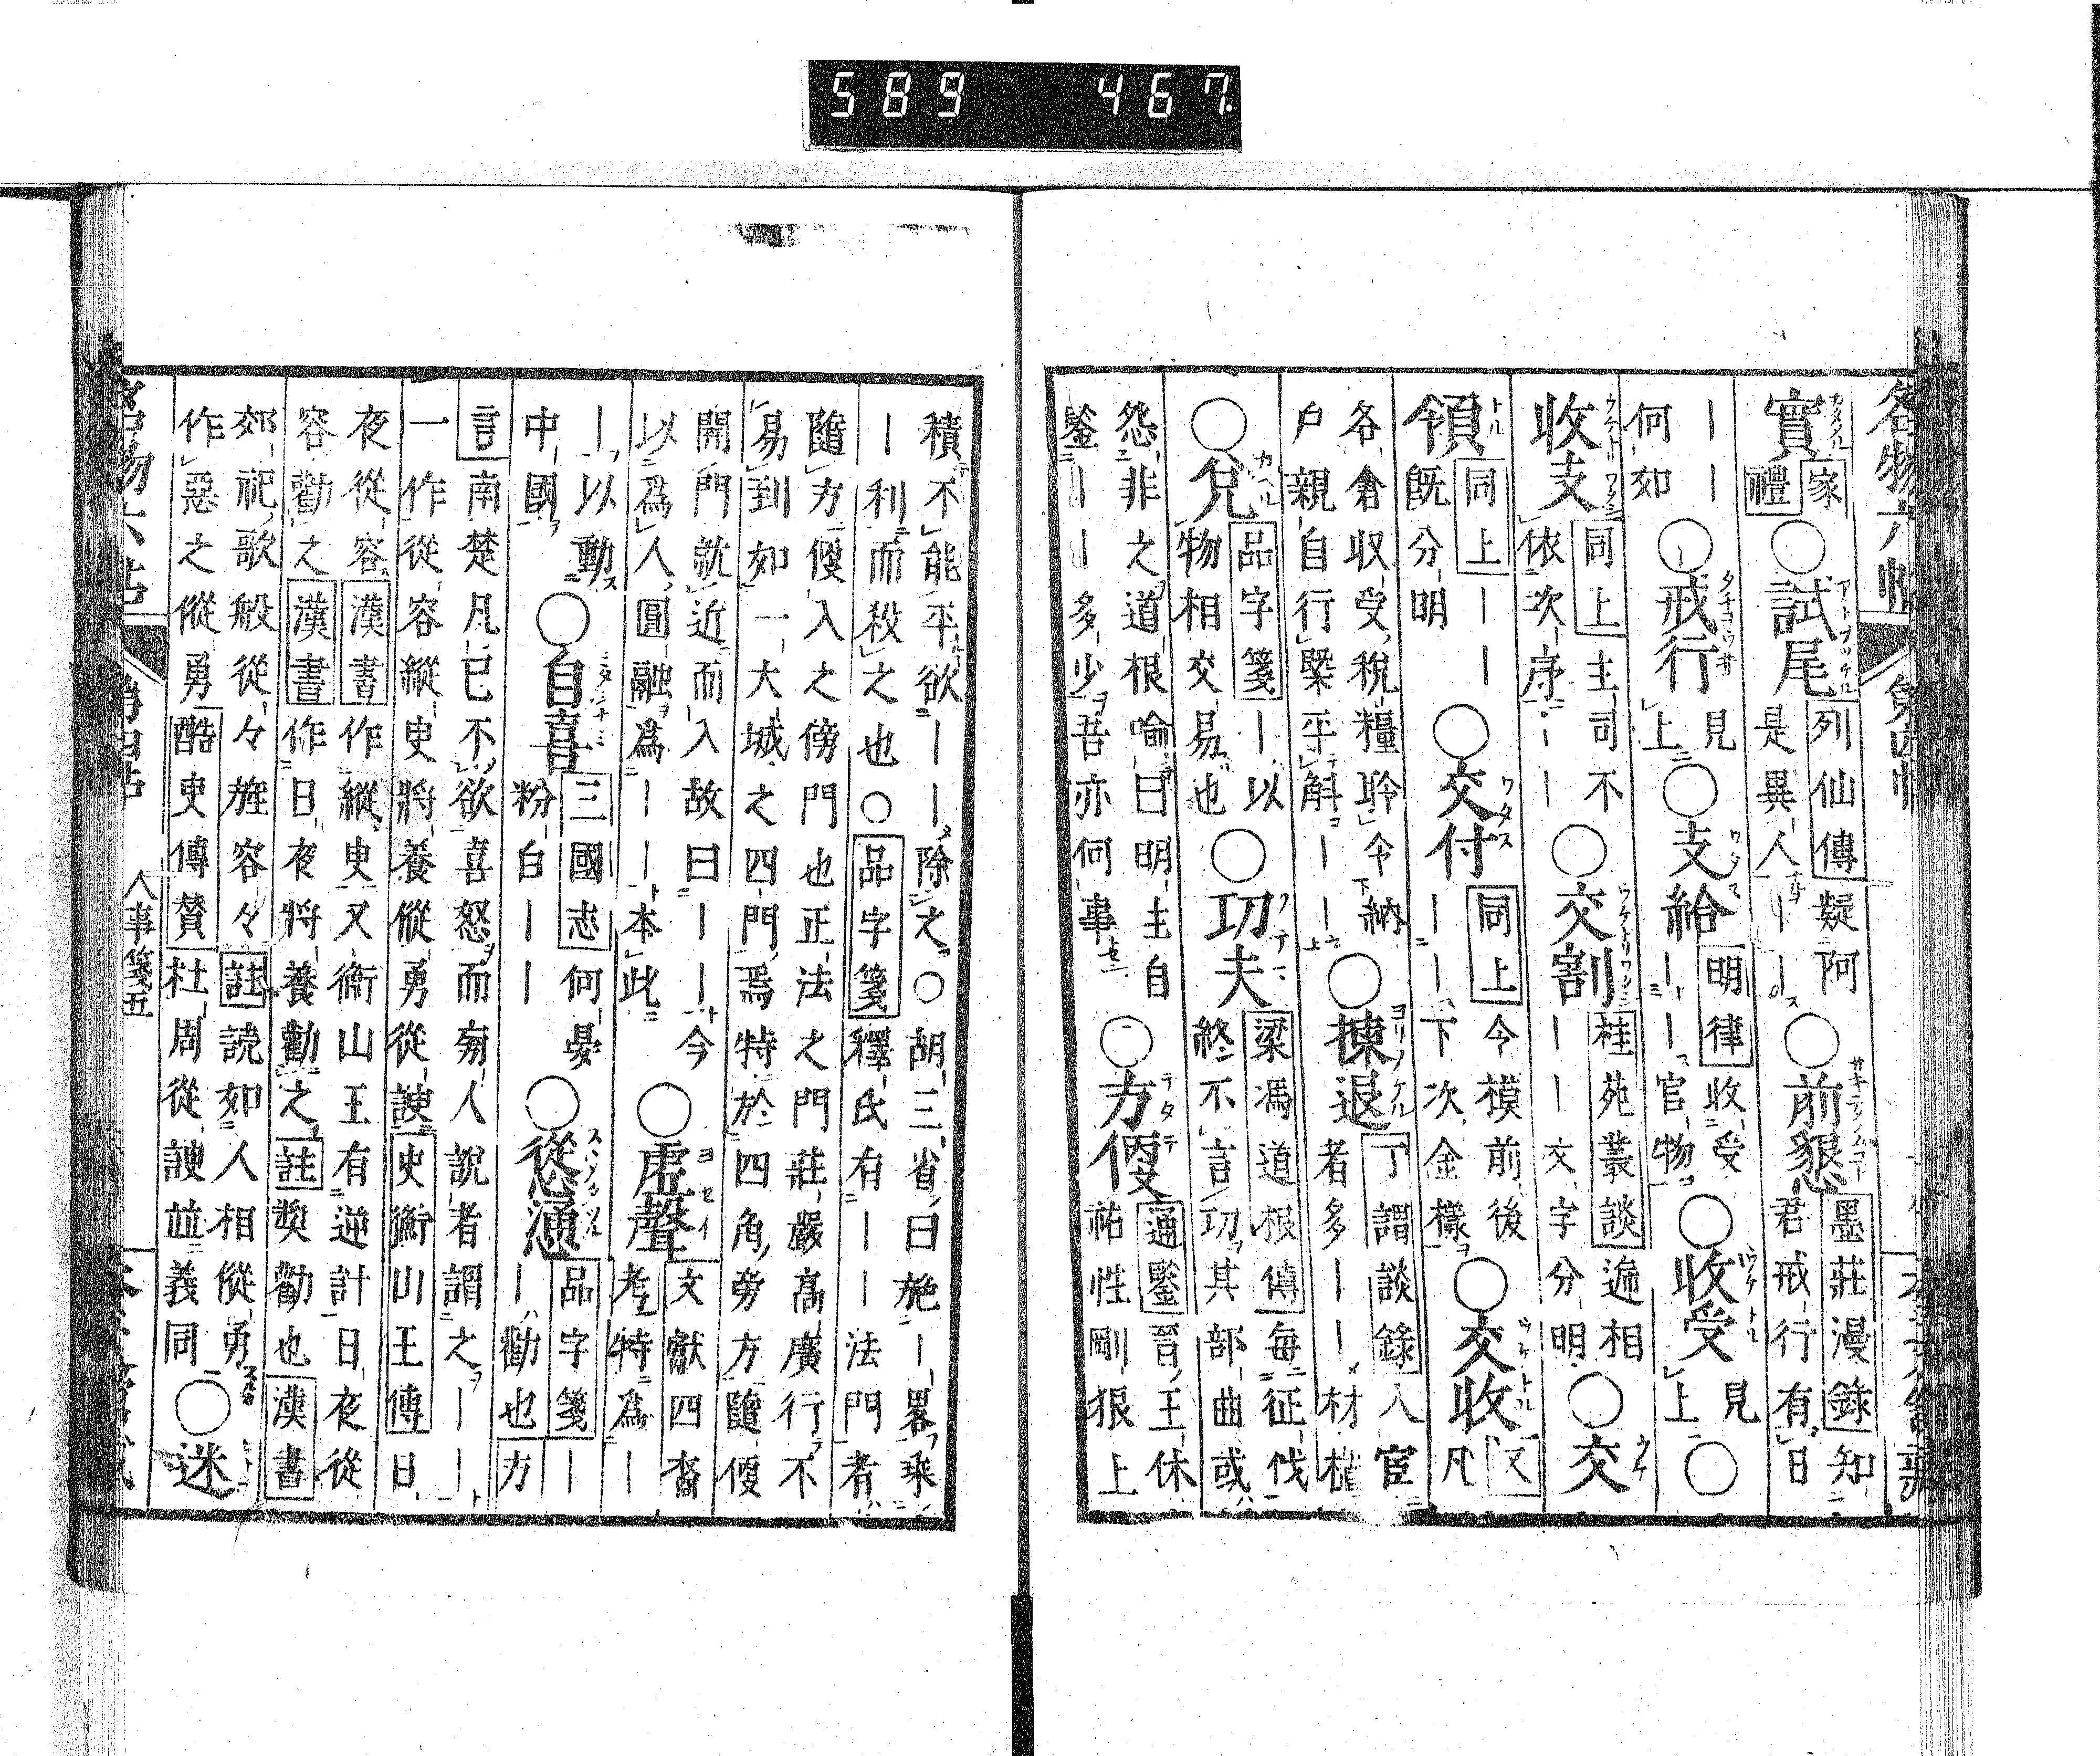 名物六帖 第四帖
實 家禮 ○試尾 列仙傳 疑阿是異人―― ○前懇 墨莊漫錄 知君戒行有日
――何如 ○戒行 見上 ○支給 明律 收受――官物 ○收受 見上 ○
收支 同上 主司不依次序―― ○交割 桂苑叢談 迤相――文字分明 ○交
領 同上 ――既分明 ○交付 同上 今模前後――下次金樣 ○交收 又 凡
各倉収受稅糧聆令納戶親自行槩平斛―― ○揀退 丁謂談錄 入官者多――材植
○兌 品字箋 ―以物相交易也 ○功夫 梁馮道根傳 每征伐終不言功其部曲或
怨非之道根喻曰明主自鑒――多少吾亦何事 ○方便 通鑒 晉王休祐性剛狠上
積不能平欲――除之○胡三省曰施―畧乘―利而殺之也○品字箋 釋氏有――法門者
隨方便入之傍門也正法之門莊嚴高廣行不易到如一大城之四門焉特於四角旁方隨便
開門就近而入故曰――今以為人圓融為――本此 ○虛聲 文獻四裔考 特為―
―以動中國 ○自喜 三國志 何晏粉白―― ○慫慂 品字箋 ――勸也 方
言 南楚凡已不欲喜怒而旁人說者謂之――一作從容縱臾將養傱勇從諛 史衡山王傳 日
夜從容 漢書 作縱臾又衡山王有逆計日夜從容勸之 漢書 作日夜將養勸之 註 奬勸也 漢書
郊祀歌般從々旌容々 註 読如人相傱勇作惡之傱勇 酷吏傳贊 杜周從諛並義同 ○迷
人事箋五
589 467